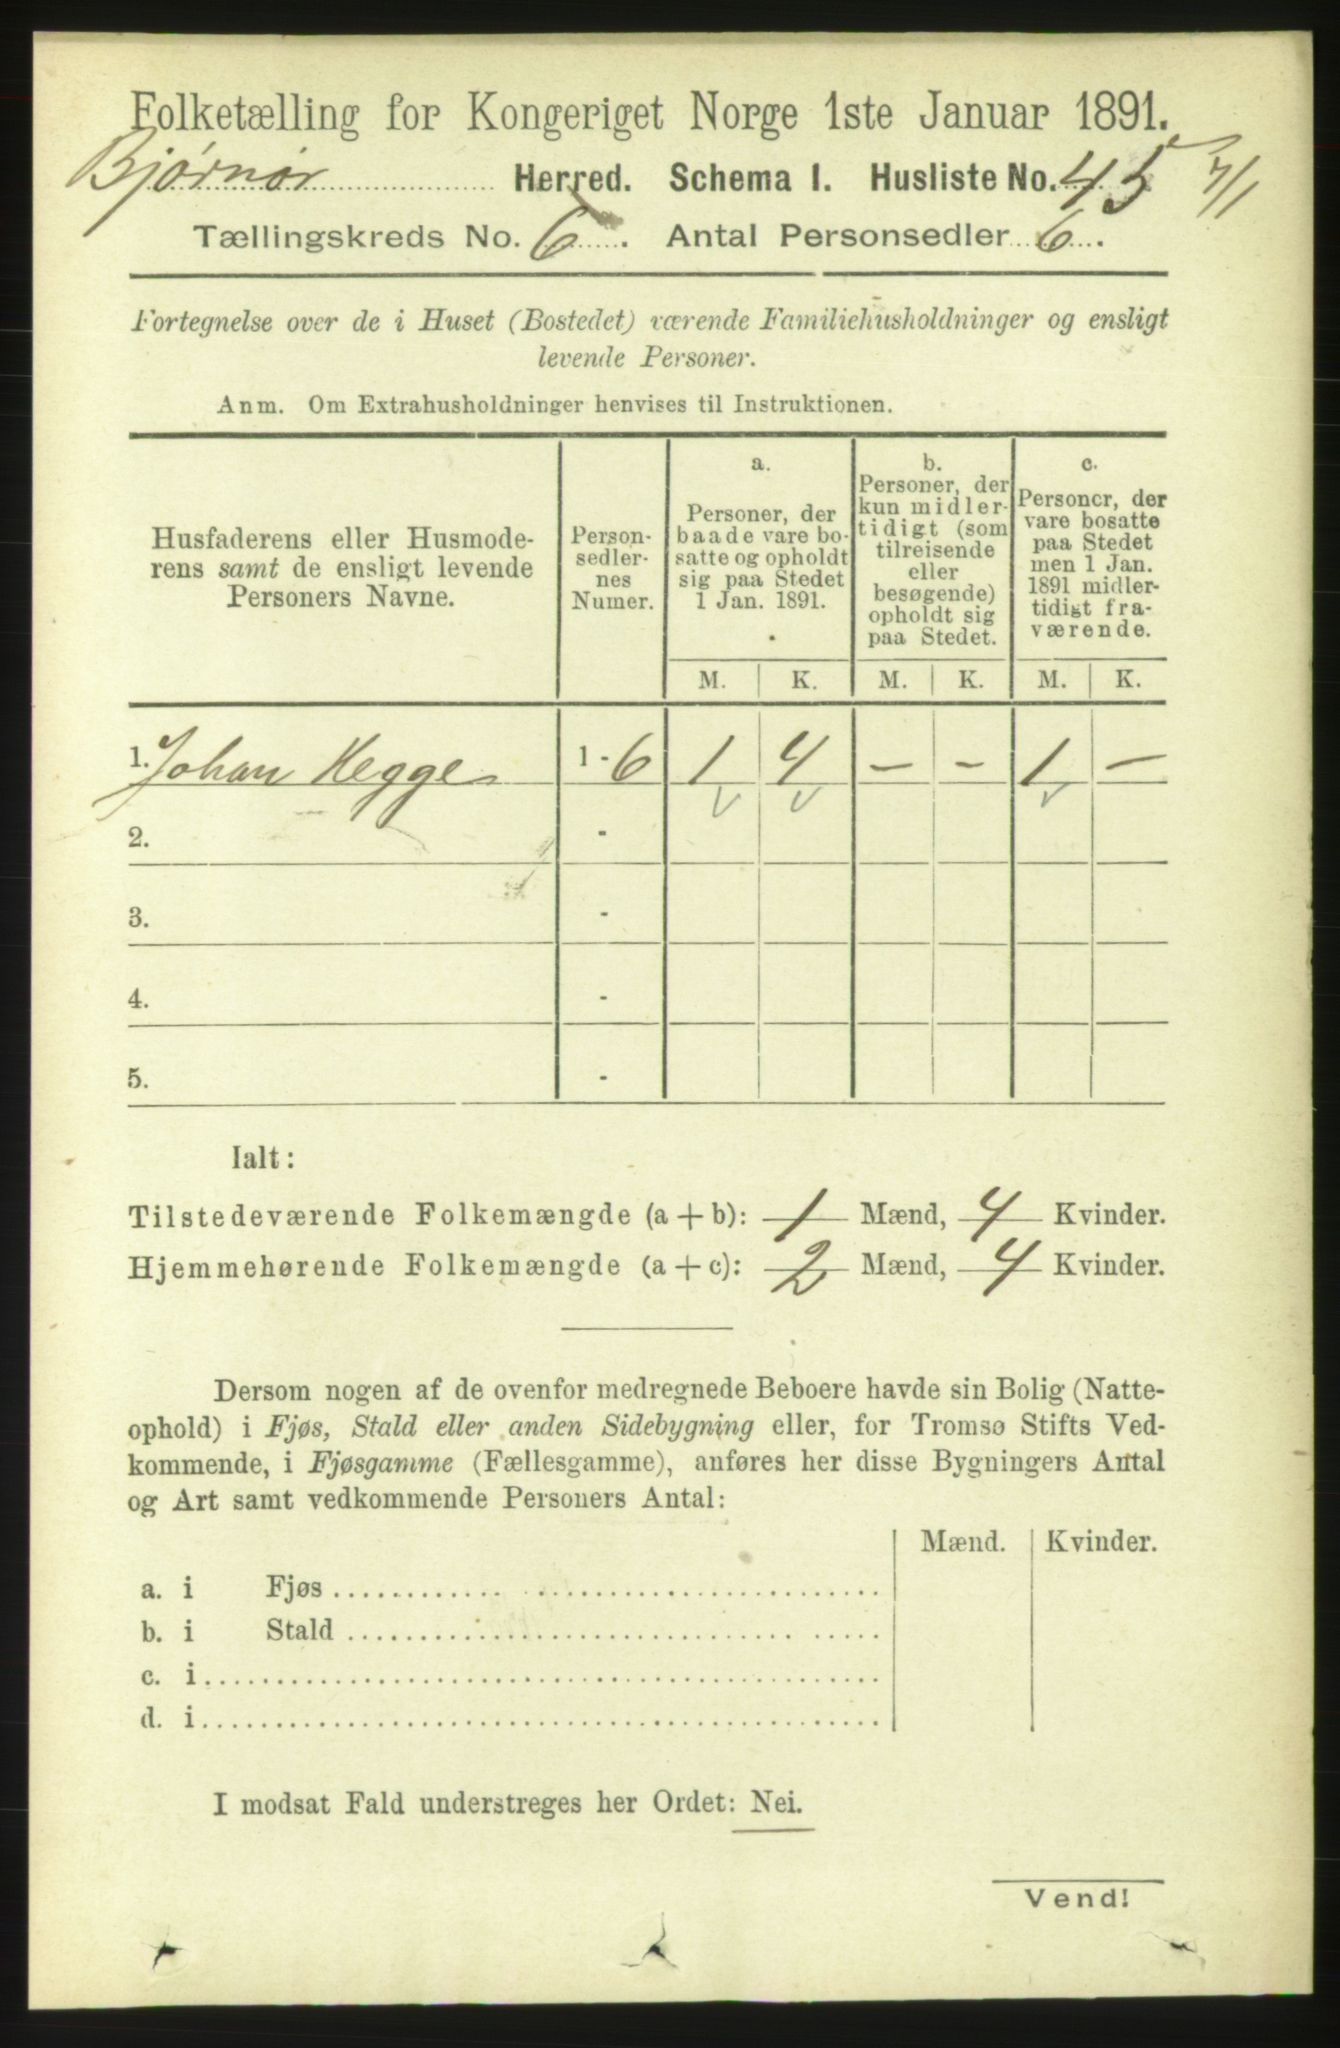 Folketælling for Kongeriget Norge 1ste Januar 1891.
Bjørnør Herred. Schema I. Husliste No. 45 7/1
Tællingskreds No. 6. Antal Personsedler 6.
Fortegnelse over de i Huset (Bostedet) værende Familiehusholdninger og ensligt
levende Personer.
Anm. Om Extrahusholdninger henvises til Instruktionen.
Husfaderens eller Husmode-
rens samt de ensligt levende
Personers Navne.
Person-
sedler-
nes
Numer.
a.
Personer, der
baade vare bo-
satte og opholdt
sig paa Stedet
1 Jan. 1891.
b.
Personer, der
kun midler-
tidigt (som
tilreisende
eller
besøgende)
opholdt sig
paa Stedet.
c.
Personer, der
vare bosatte
paa Stedet
men 1 Jan.
1891 midler-
tidigt fra-
værende.
M. K. M. K. M. K.
1. Johan Hegge 1 - 6 1 4 - - 1 -
2. -
3. -
4. -
5. -
Ialt:
Tilstedeværende Folkemængde (a + b): 1 Mænd, 4 Kvinder.
Hjemmehørende Folkemængde (a + c): 2 Mænd, 4 Kvinder.
Dersom nogen af de ovenfor medregnede Beboere havde sin Bolig (Natte-
ophold) i Fjøs, Stald eller anden Sidebygning eller, for Tromsø Stifts Ved-
kommende, i Fjøsgamme (Fællesgamme), anføres her disse Bygningers Antal
og Art samt vedkommende Personers Antal:
Mænd. Kvinder.
a. i Fjøs
b. i Stald
c. i
d. i
I modsat Fald understreges her Ordet: Nei.
Vend!